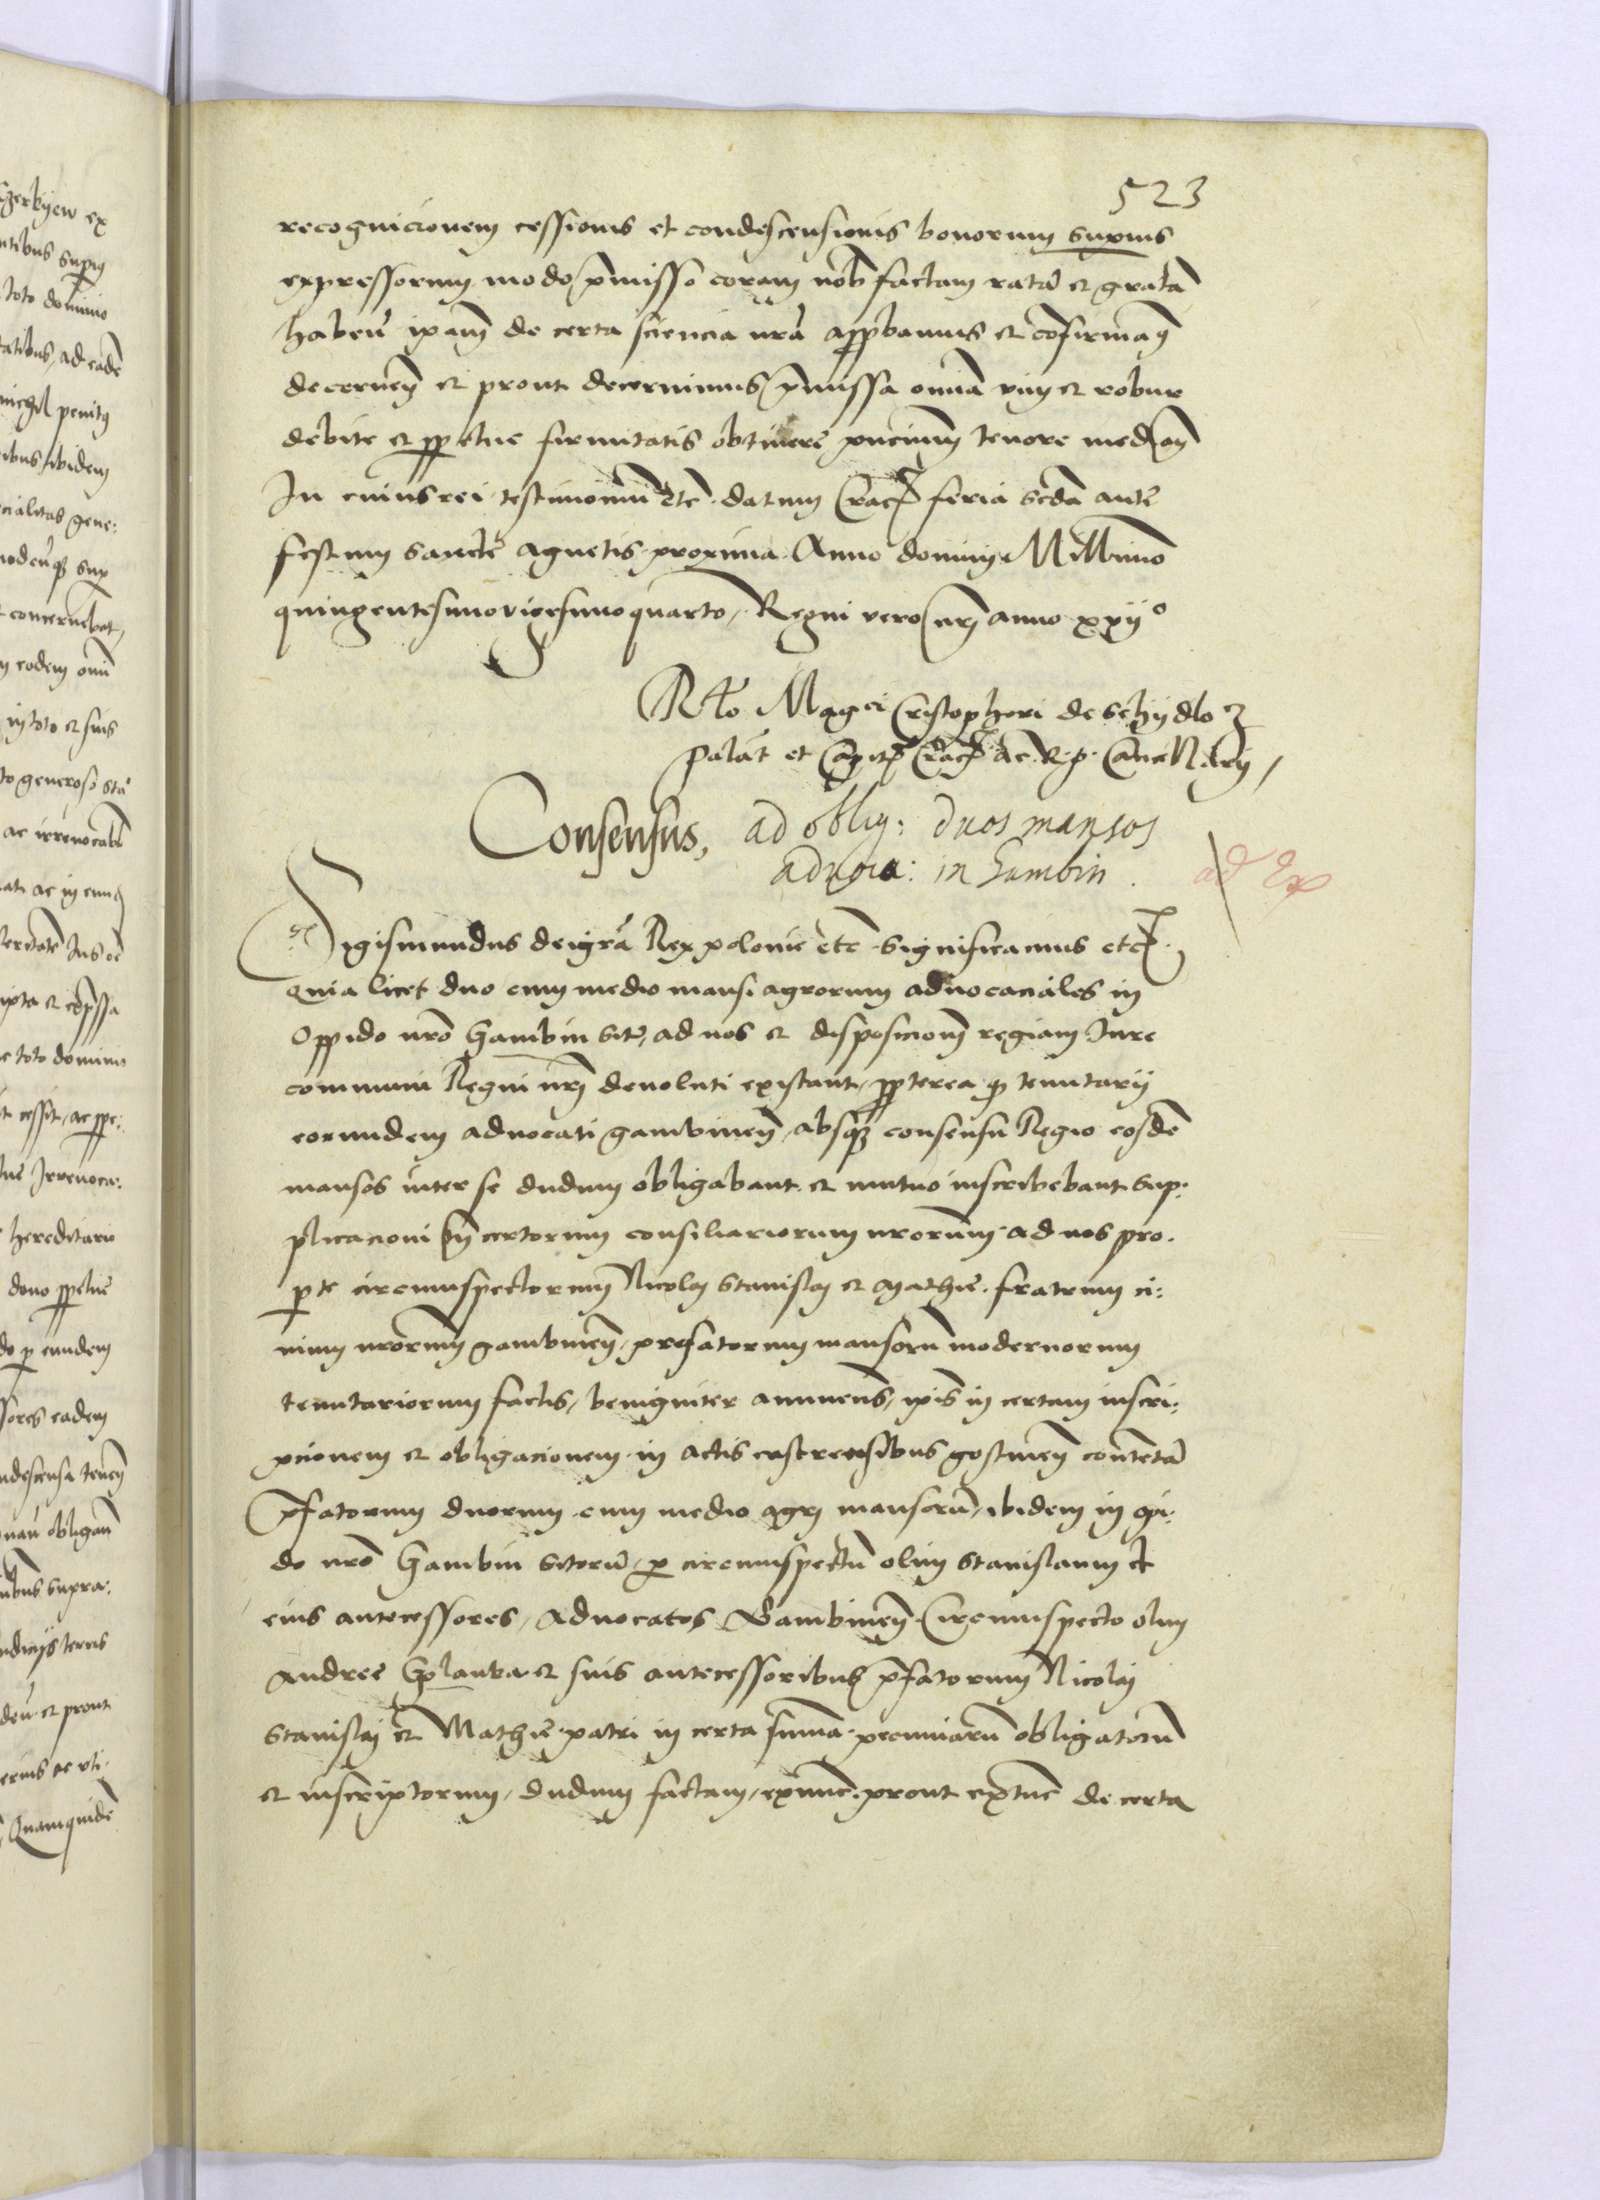 523
recognicionem cessionis et condescensionis bonorum superius
expressorum modo pmisso coram nob factam ratam et gratam
haben ipam de certa sciencia nra appbamus et cofirmam9
decernen et prout decernimus pmissa omnia vim et robur
debite et ppetue firmitatis obtinere pncium tenore median
In cuius rei testimonium etc. datum Crac feria scda ante
festum sancte Agnetis proxima Anno domini Millimo
quingentesimo vicesimo quarto, Regni vero nri anno xvij°
Rlo Magci Cristophori de Schijdlo
Palat et Capit Crac ac R. P. Cancellarij,
Consensus, ad oblig: duos mansos
advoca: in Gambin.
ad Ex
Sigismundus dei gra Rex polonie etc. Significamus etc.
Quia licet duo cum medio mansi agrorum advocaciales in
Oppido nro Gambin siti, ad nos et disposicionem regiam Iure
communi Regni nri devoluti existant, ppterea q tenutarij
eorundem advocati gambinen, absq consensu Regio eosdem
mansos inter se dudum obligabant et mutuo inscribebant Sup:
plicacioni tn certorum consiliariorum nrorum ad nos pro
pte circumspectorum Nicolai Stanislai et Mathie fratrum ci:
vium nrorum gambinen, prefatorum mansoru modernorum
tenutariorum factis, benigniter annuens, ipis in certam inscri:
pcionem et obligacionem in actis castrensibus gostinen contenta
pfatorum duorum cum medio agri mansoru, ibidem in opi:
do nro Gambin sitoru, p circumspectu olim Stanislaum et
eius antecessores, advocatos Gambinen Circumspecto olim
Andree Golanka et suis antecessoribus pfatorum Nicolai
Stanislai et Mathie patri in certa summa pecuniaru obligatoru
et inscriptorum, dudum factam, exnunc prout extunc de certa